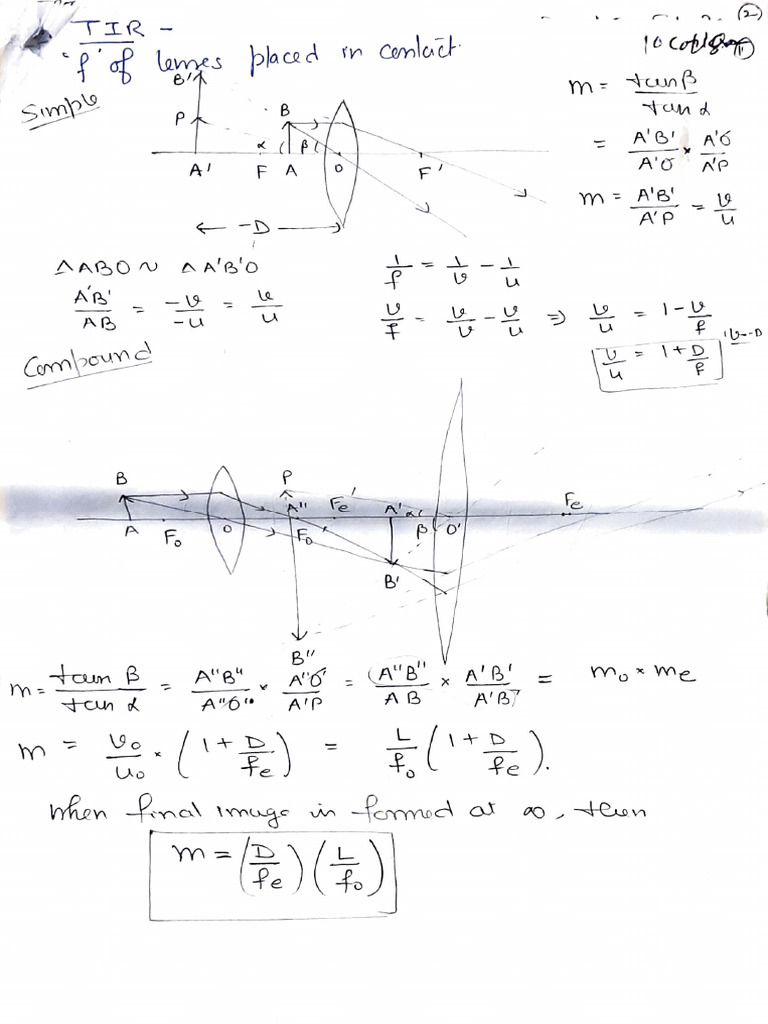 (2)
TIR -
'f' of lenses placed in contact.
10 copies
Simple
B'
P
B
α
β
A'
F
A
O
F'
← -D →
m = tanβ / tanα
= A'B' / A'O × A'O / A'P
m = A'B' / A'P = v / u
△ABO ~ △A'B'O
A'B' / AB = -v / -u = v / u
1/f = 1/v - 1/u
v/f = v/v - v/u ⇒ v/u = 1 - v/f
v/u = 1 + D/f
Compound
B
P
A''
Fe'
A'
α
Fe
A
Fo
O
Fo'
β
O'
B'
B''
m = tan β / tan α = A''B'' / A''O'' × A''O' / A'P = A''B'' / AB × A'B' / A'B' = mo × me
m = vo / uo × (1 + D/fe) = L/fo (1 + D/fe).
when final image in formed at ∞, then
m = (D/fe) (L/fo)